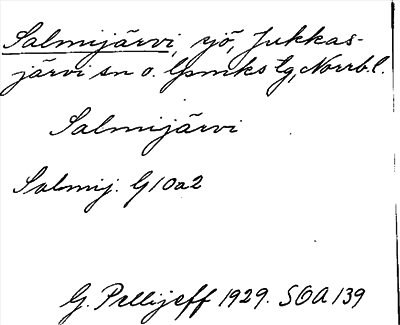 Salmijärvi, sjö, Jukkas-
järvi sn o. lpmks tg, Norrb. l.
Salmijärvi
Salmij. G10a2
G. Pellijeff 1929. SOA 139